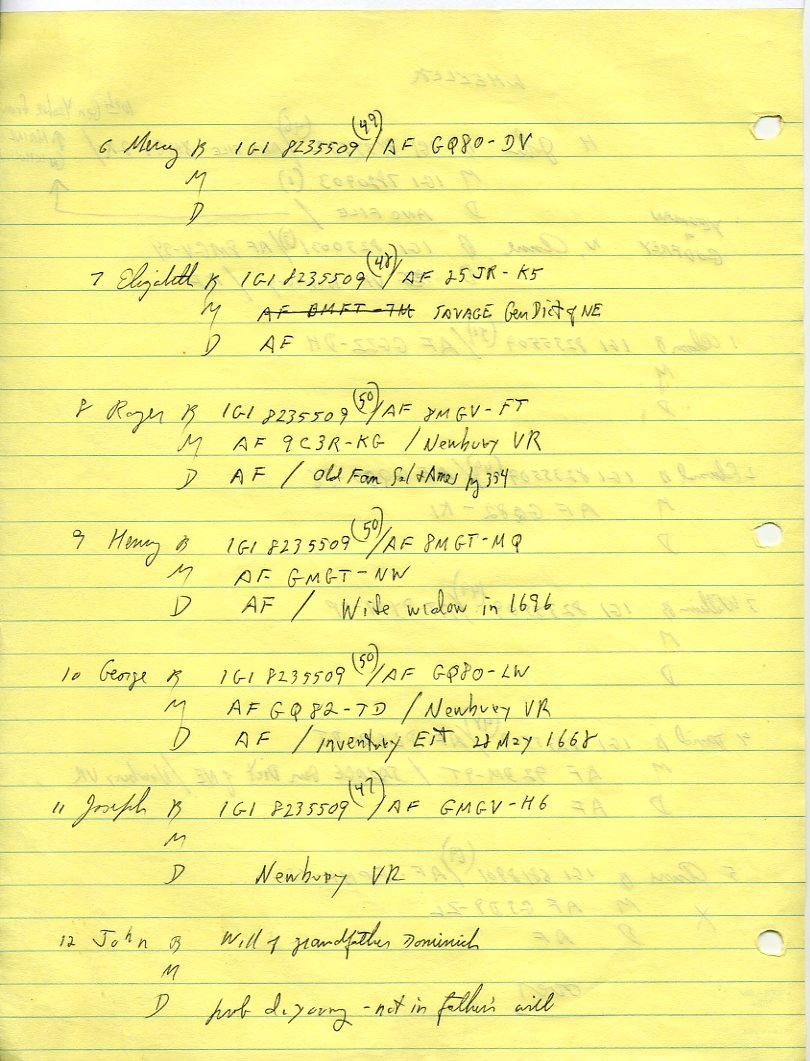 6 Mercy B IGI 8235509 (49) / AF GQ80-DV
M
D
7 Elizabeth B IGI 8235509 (48) / AF 25JR-K5
M AF 8MFT-7M SAVAGE Gen Dict of NE
D AF
8 Roger B IGI 8235509 (50) / AF 8MGV-FT
M AF 9C3R-KG / Newbury VR
D AF / Old Fam Sal & Ames pg 354
9 Henry B IGI 8235509 (50) / AF 8MGT-MQ
M AF GMGT-NW
D AF / Wife widow in 1696
10 George B IGI 8235509 (50) / AF GQ80-LW
M AF GQ82-TD / Newbury VR
D AF / inventory Est 28 May 1668
11 Joseph B IGI 8235509 (47) / AF GMGV-H6
M
D Newbury VR
12 John B Will of grandfather Dominick
M
D prob d. young - not in father's will